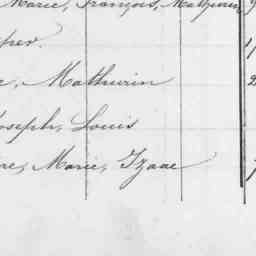 Marie, François, Mathurin
Mathurin
Joseph, Louis
Marie, Izaac